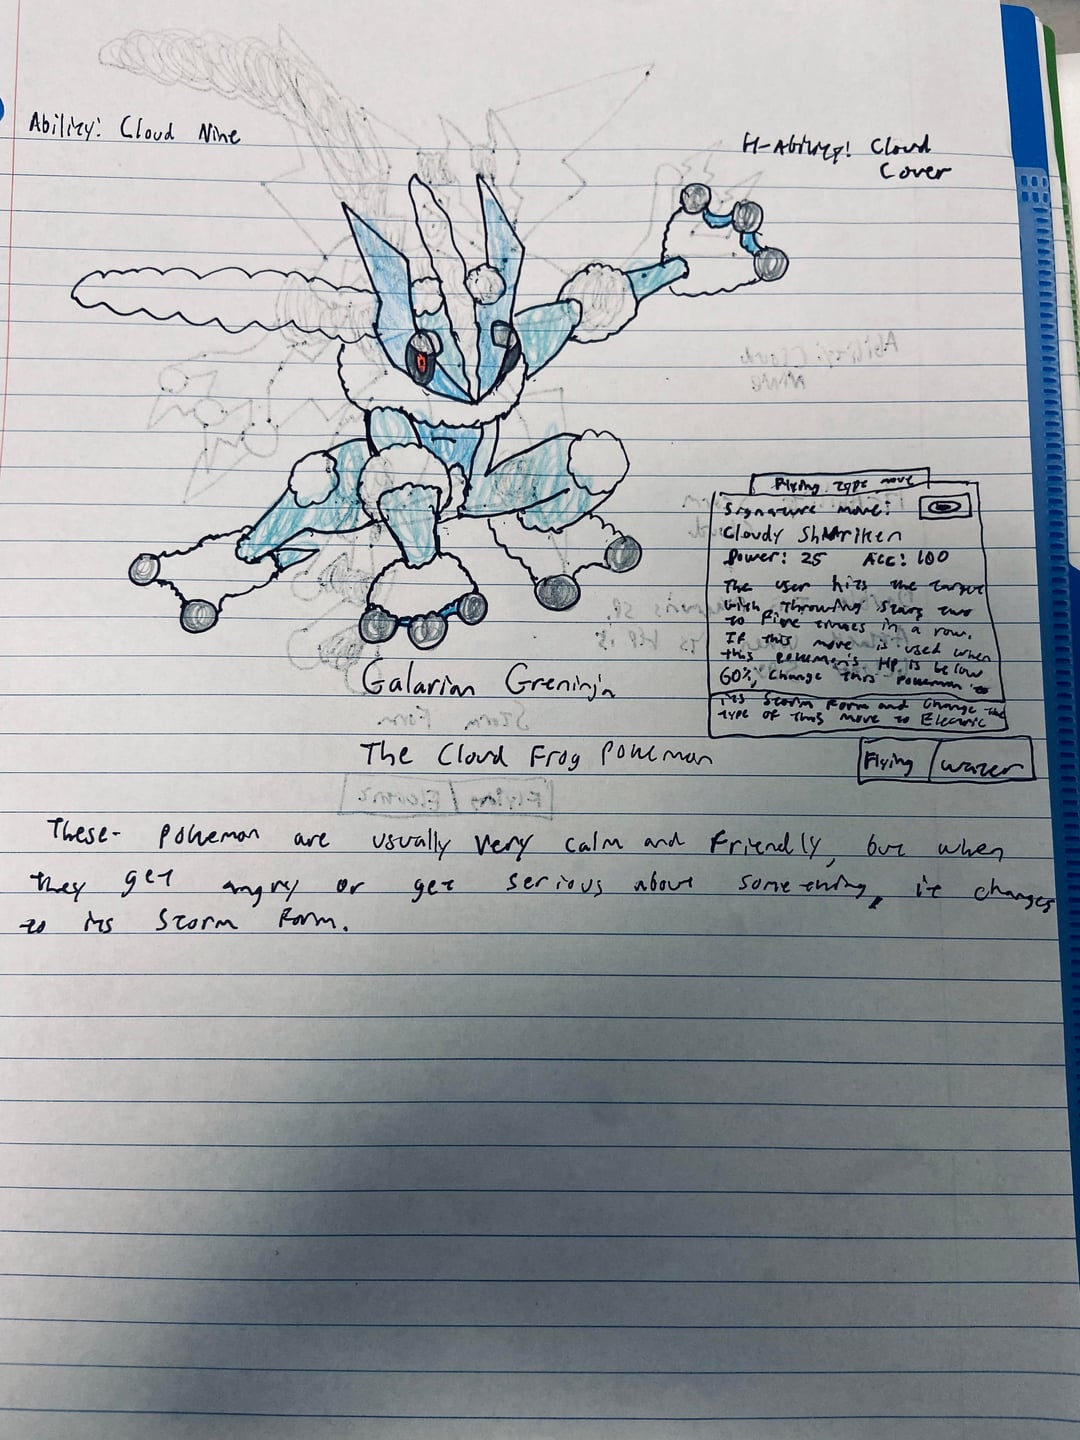 Ability: Cloud Nine
H-Ability: Cloud
Cover
Flying type move
Signature move:
Cloudy Shuriken
Power: 25 Acc: 100
The user hits the target
with throwing stars two
to five times in a row.
If this move is used when
this pokemon's HP is below
60%, change this pokemon to
its Storm Form and change the
type of this move to Electric
Galarian Greninja
The Cloud Frog Pokemon
Flying / Water
These- pokemon are usually very calm and friendly, but when
they get angry or get serious about something, it changes
to its Storm Form.
Ability: Cloud
Nine
Storm Form
Flying / Electric